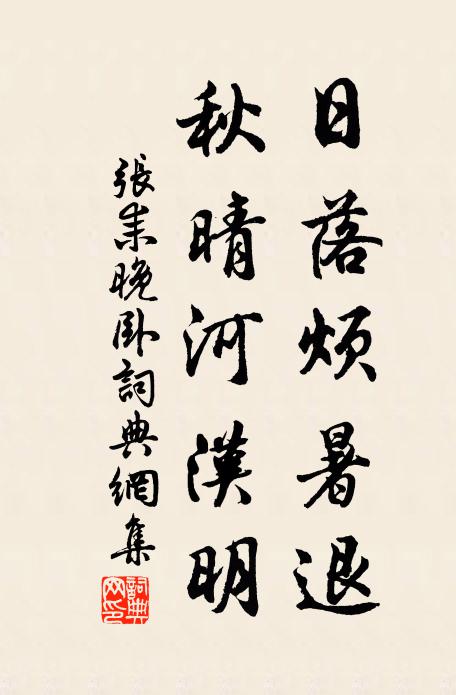 日落煩暑退
秋晴河漢明
張耒晚臥詞典網集
詞典網印